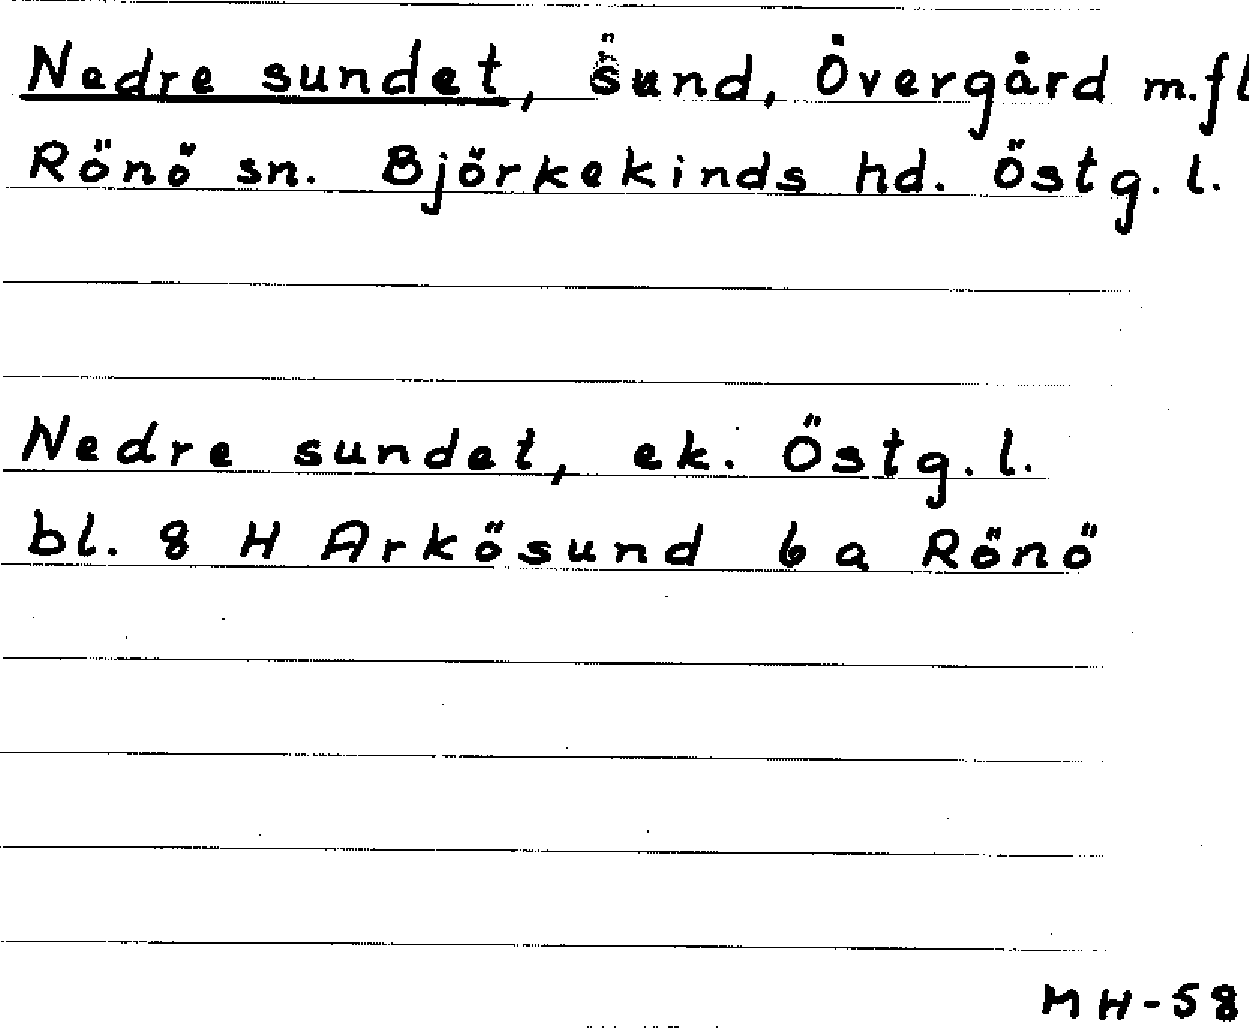 Nedre sundet, sund, Övergård m.fl
Rönö sn. Björkekinds hd. Östg. l.
Nedre sundet, ek. Östg. l.
bl. 8 H Arkösund 6 a Rönö
MH-58